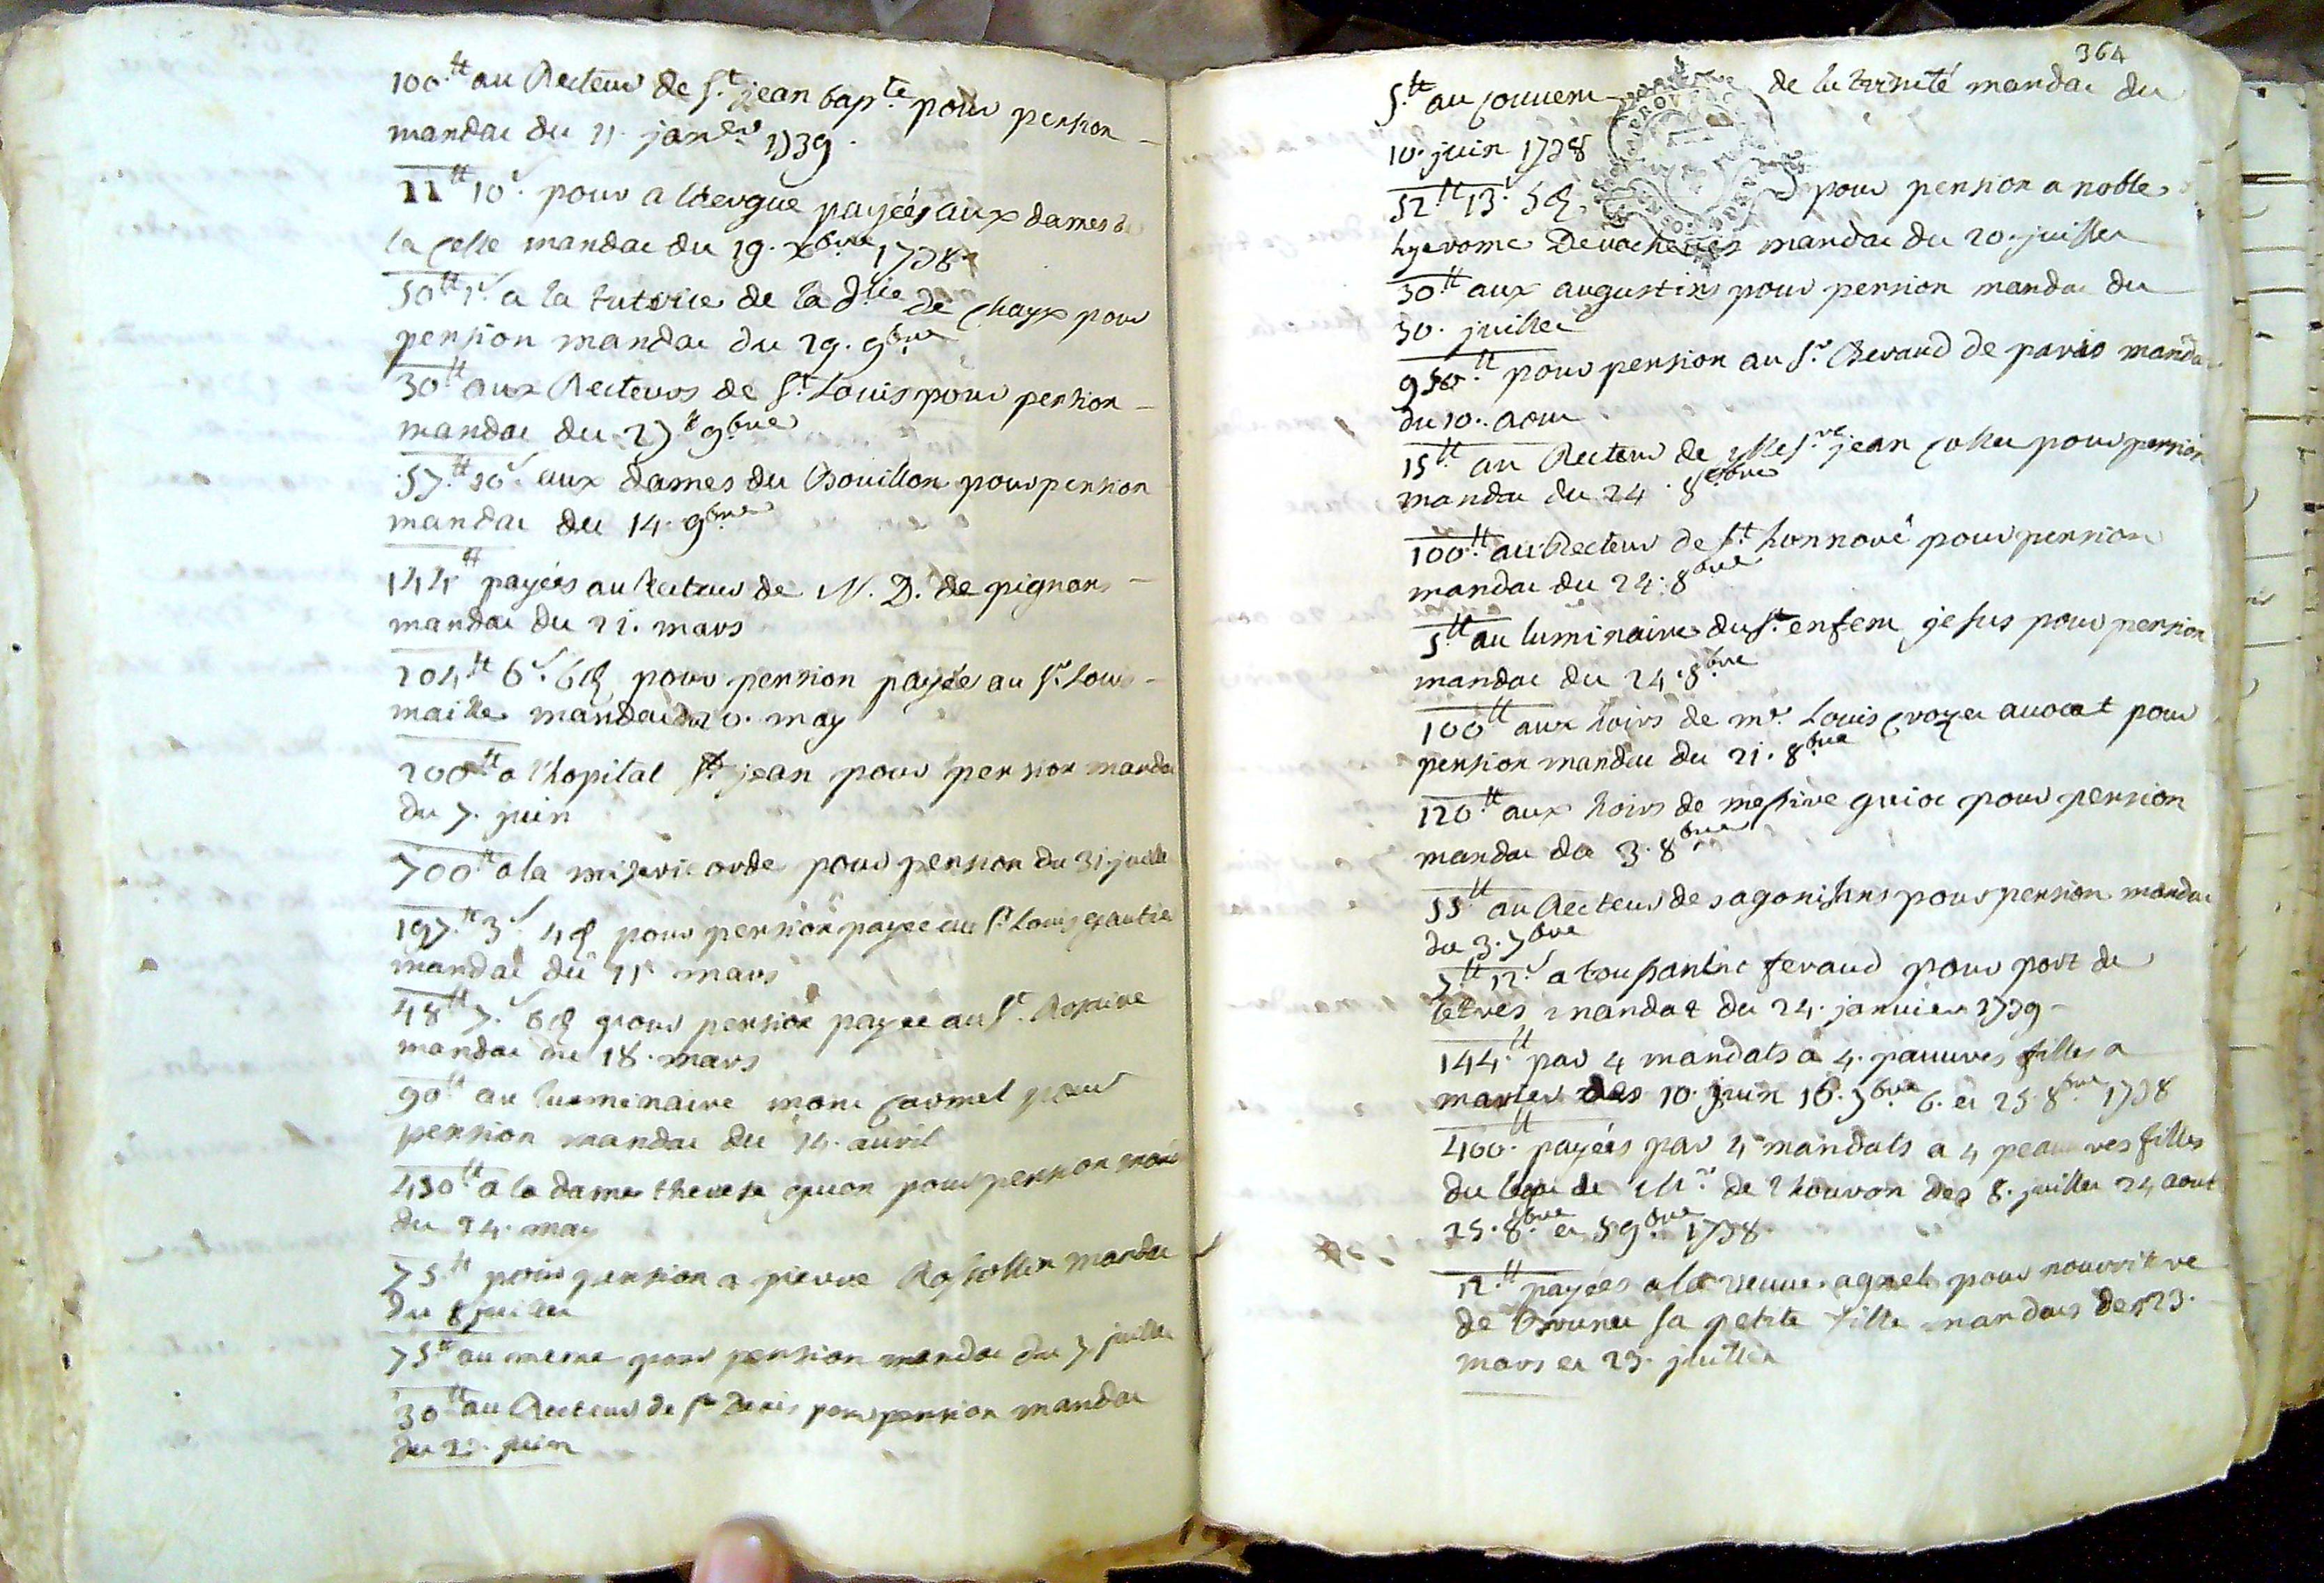 100.tt au Recteur de S.t jean bap.te pour pension
mandat du 21. jan.er 1739.
22tt 10s. pour albergue payées aux dames de
la Celle mandat du 19. xbre 1738
50tt 1s. a la tutrice de la d.lle de Chaux pour
pension mandat du 29. 9bre
30tt aux Recteurs de S.t Louis pour pension
mandat du 27 9bre
57.tt 10s. aux dames du Bouillon pour pension
mandat du 14. 9bre
144tt payées au Recteur de N. D. de pignans
mandat du 21. mars
204.tt 6s. 6d pour pension payée au S.r Louis
maille mandat du 20. may
200tt a l'hopital St jean pour pension mandat
du 7. juin
700tt a la misericorde pour pension du 31. juillet
197.tt 3s. 4d pour pension payée au S.r Louis gautier
mandat du 15 mars
48tt 7s. 6d pour pension payée au S.t Rosaire
mandat du 18. mars
90tt au luminaire mont Carmel pour
pension mandat du 14. avril
450tt a la dame therese guon pour pension mandat
du 24. may
75.tt pour pension a pierre Rossollin mandat
du 8 juillet
75tt au meme pour pension mandat du 7 juillet
30tt au Recteur de St Denis pour pension mandat
du 22. juin
364
5.tt au Couvent de la trinité mandat du
10. juin 1738
52tt 13s. 5d pour pension a noble
hyerome Devacheres mandat du 20. juillet
30.tt aux augustins pour pension mandat du
30. juillet
950.tt pour pension au S.r Beraud de paris mandat
du 10. aout
15tt au Recteur de Mess.re jean Collet pour pension
mandat du 24. 8bre
100.tt au Recteur de S.t honnoré pour pension
mandat du 24. 8bre
5tt au luminaire du St enfent jesus pour pension
mandat du 24. 8bre
100tt aux hoirs de mr. Louis Crozet avocat pour
pension mandat du 21. 8bre
120tt aux hoirs de messire guiot pour pension
mandat du 3. 8bre
55tt au Recteur des agonisans pour pension mandat
du 3. 7bre
5tt 12s. a toussantne feraud pour port de
letres mandat du 24. janvier 1739
144.tt par 4 mandats a 4. pauvres filles a
marier des 10. juin 16. 7bre 6. et 25. 8bre 1738
400.tt payées par 4 mandats a 4 peauvres filles
du legat de Mr. de Thouron des 8. juillet 24 aout
25. 8bre et 5 9bre 1738.
12.tt payées a la veuve agnel pour nourriture
de Brunet sa petite fille mandats des 23.
mars et 23. juillet